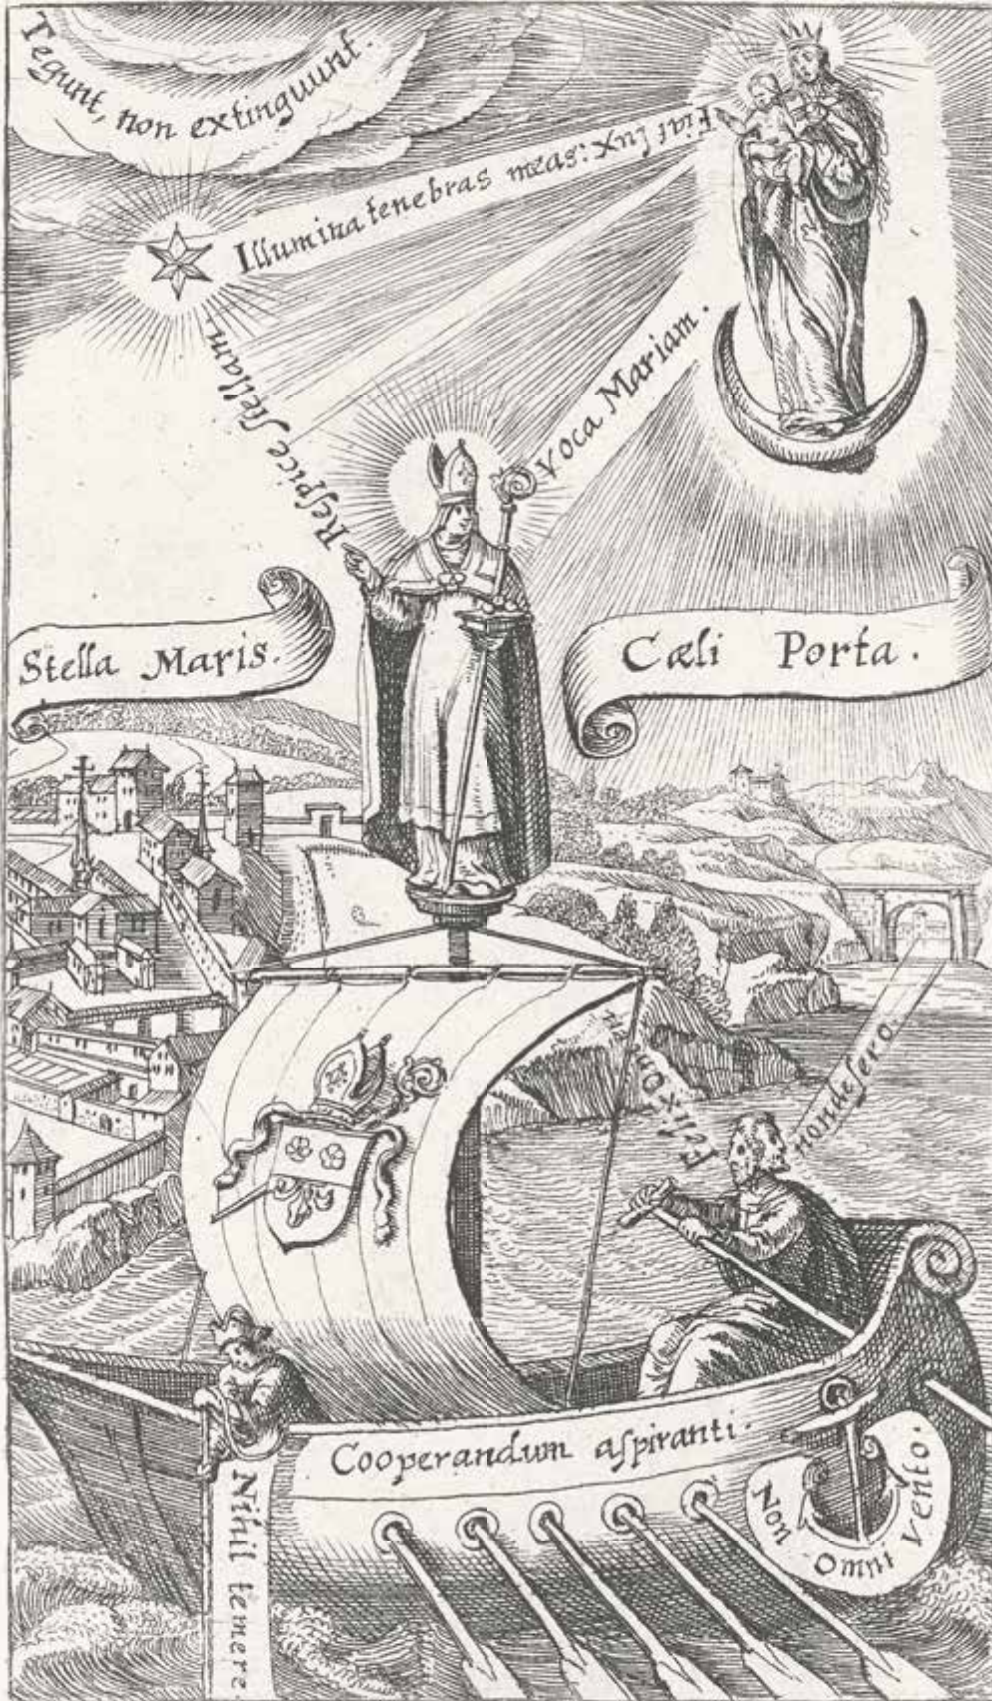 Tegunt, non extinguunt.
Illumina tenebras meas:
Fiat lux
Respice stellam.
Voca Mariam.
Stella Maris.
Cæli Porta.
non desero.
Cooperandum aspiranti.
Non Omni Vento.
Nihil temere.